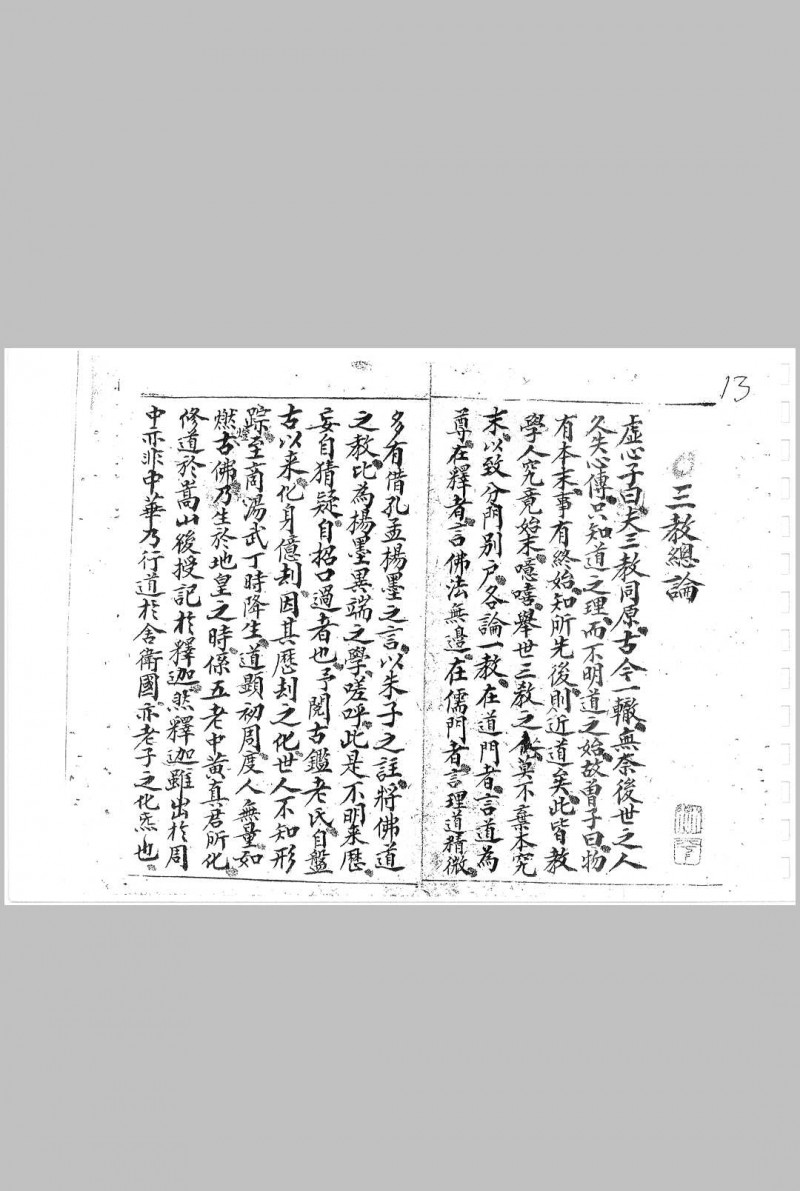 13
三教總論
虛心子曰夫三教同原古今一轍無奈後世之人
久失心傳只知道之理而不明道之始故曾子曰物
有本末事有終始知所先後則近道矣此皆教
學人究竟始末噫嘻舉世三教之徒莫不棄本究
末以致分門別户各論一教在道門者言道為
尊在釋者言佛法無邊在儒門者言理道精微
多有借孔孟楊墨之言以朱子之註將佛道
之教比為楊墨異端之學嗟呼此是不明來歷
妄自猜疑自招口過者也予閱古鑑老氏自盤
古以来化身億刦因其歷刦之化世人不知形
踪至商湯武丁時降生道顯初周度人無量如
燃燈古佛乃生於地皇之時係五老中黃真君所化
修道於嵩山後授記於釋迦然釋迦雖出於周
中亦非中華乃行道於舍衛國亦老子之化炁也